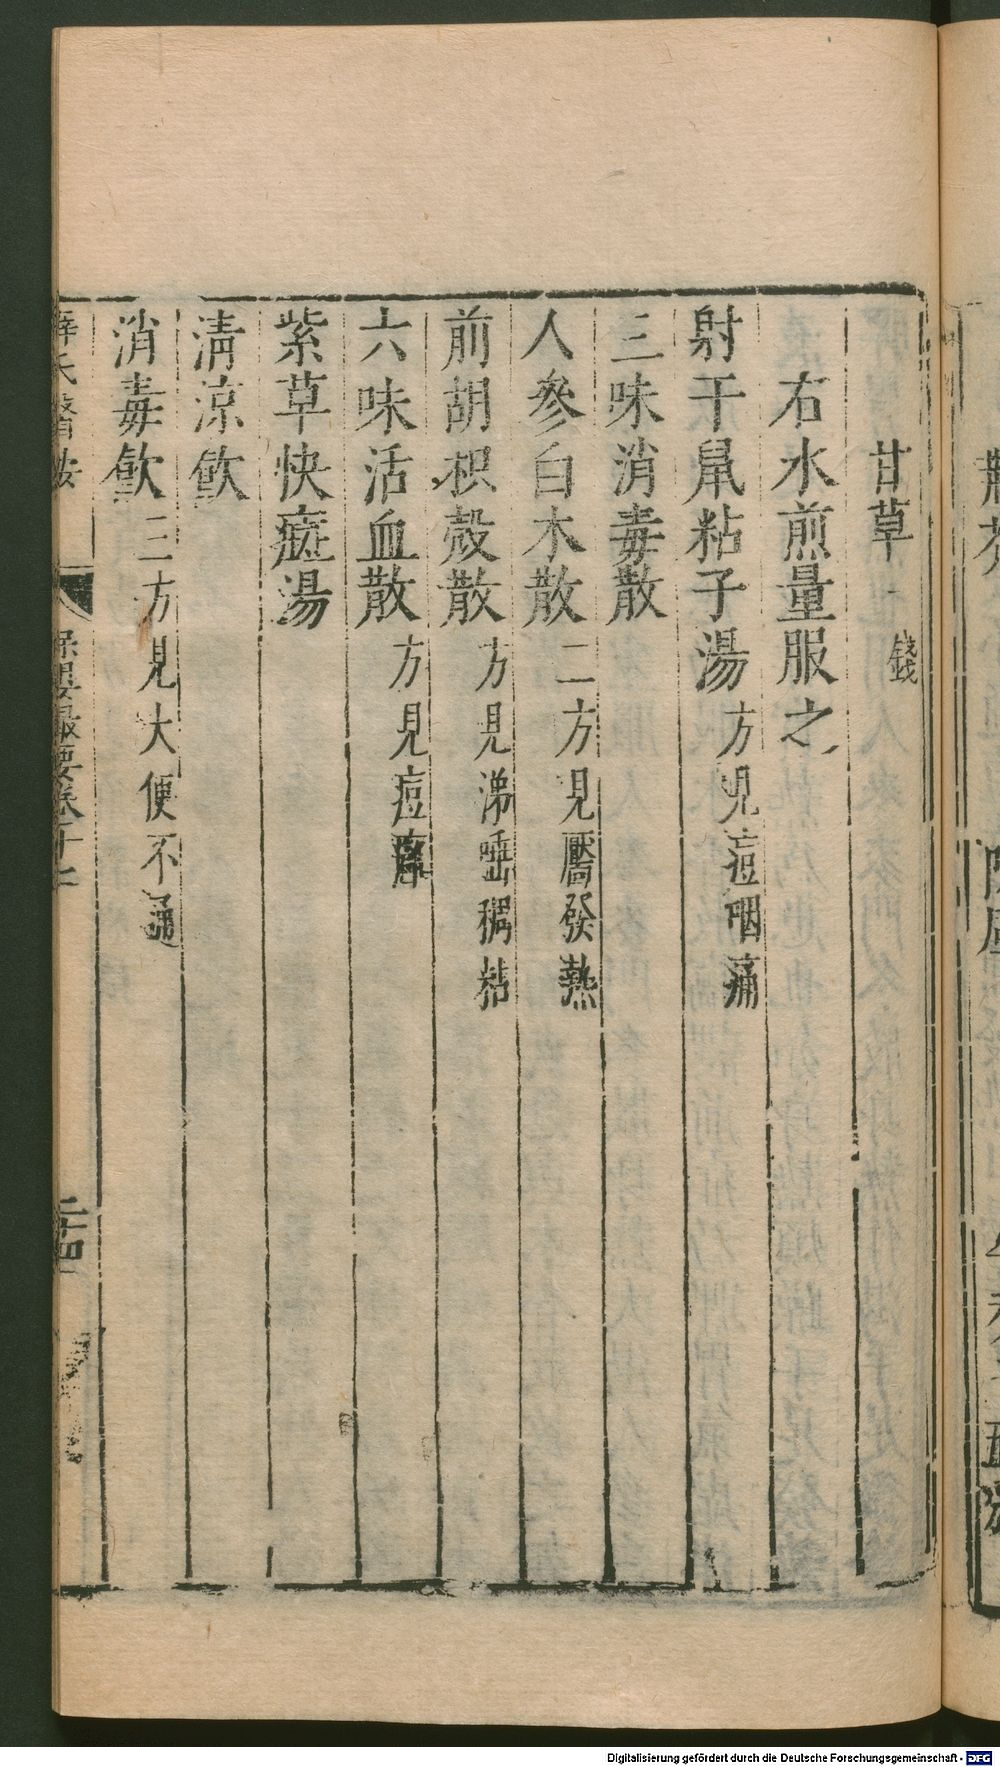 甘草一錢
右水煎量服之
射干鼠粘子湯方見痘咽痛
三味消毒散
人參白朮散二方見靨發熱
前胡枳殼散方見涕唾稠粘
六味活血散方見痘癰
紫草快癍湯
清涼飲
消毒飲三方見大便不通
薛氏醫按 保嬰最要卷十七 二十四
Digitalisierung gefördert durch die Deutsche Forschungsgemeinschaft - DFG